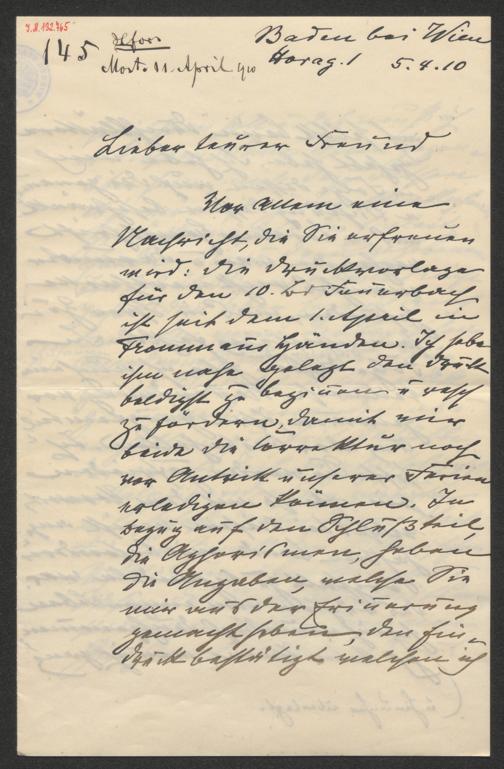 J.N.132.765
145 Hfors
Baden bei Wien
Mott. 11. April 910
Horag. 1 5.4.10
Lieber teurer Freund
Vor allem eine
Nachricht, die Sie erfreuen
wird: die Druckvorlage
für den 10. Bd Feuerbach
ist seit dem 1. April in
Frommans Händen. Ich habe
ihm nahe gelegt den Druck
baldigst zu beginnen u rasch
zu fördern, damit wir
beide die Correktur noch
vor Antritt unserer Ferien
erledigen können. In
Bezug auf den Schlußteil,
die Aphorismen, haben
die Angaben, welche Sie
mir aus der Erinnerung
gemacht haben, den Ein-
druck bestätigt welchen ich